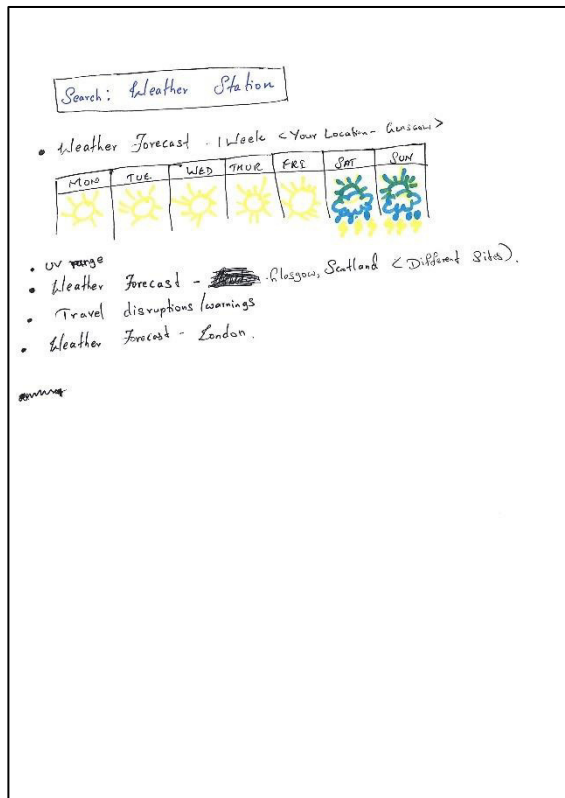 Search: Weather Station
• Weather Forecast - 1 Week <Your Location - Glasgow>
MON TUE WED THUR FRI SAT SUN
• UV range
• Weather Forecast - Glasgow, Scotland <Different Sites).
• Travel disruptions/warnings
• Weather Forecast - London.